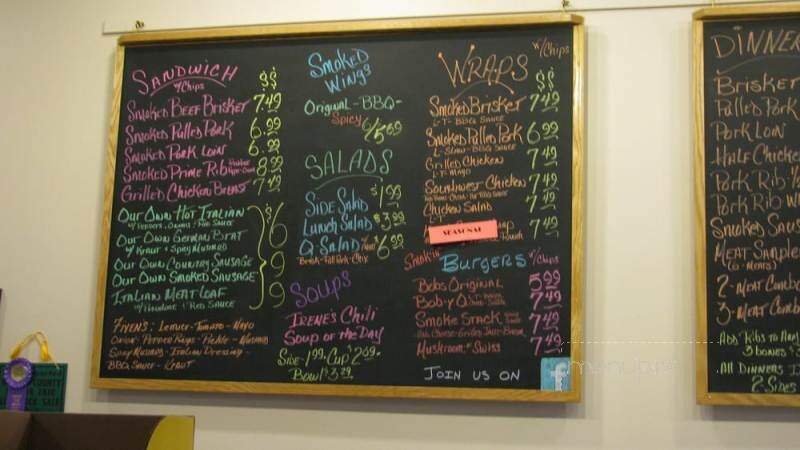 SANDWICH
w/Chips
$$
Smoked Beef Brisket 7.49
Smoked Pulled Pork 6.99
Smoked Pork Loin 6.99
Smoked Prime Rib 8.99
Grilled Chicken Breast 7.49
Our Own Hot Italian
w/Peppers, Onions, Red Sauce
Our Own German Brat
w/Kraut & Spicy Mustard
Our Own Country Sausage
Our Own Smoked Sausage
Italian Meat Loaf
w/Provolone & Red Sauce
$6 99
Fixens: Lettuce-Tomato-Mayo
Onion-Pepper Rings-Pickle-Mustard
Spicy Mustard-Italian Dressing-
BBQ Sauce-Kraut
Smoked
Wings
Original-BBQ-
Spicy 6/5.69
SALADS
Side Salad $1.99
Lunch Salad $3.99
Q Salad 6.99
Brisk-Pull Pork-Chix
SOUPS
Irene's Chili
Soup of the Day
Side 1.99 Cup $2.69
Bowl $3.29
WRAPS
w/Chips
$$
Smoked Brisket 7.49
L-T-BBQ Sauce
Smoked Pulled Pork 6.99
L-Slaw-BBQ Sauce
Grilled Chicken 7.49
L-T-Mayo
Southwest Chicken 7.49
Chicken Salad 7.49
L-T
SEASONAL
7.49
Smokin
BURGERS w/Chips
Bobs Original 5.99
Bob-y Q 7.49
Smoke Stack 7.49
Mushroom & Swiss 7.49
JOIN US ON
f
menupix
DINNER
Brisket
Pulled Pork
Pork Loin
Half Chicken
Pork Rib 1/2
Pork Rib Wh
Smoked Saus
Meat Sampler
(6-Meats)
2-Meat Combo
3-Meat Combo
Add Ribs to Any
3 bones $
All Dinners I
2-Sides